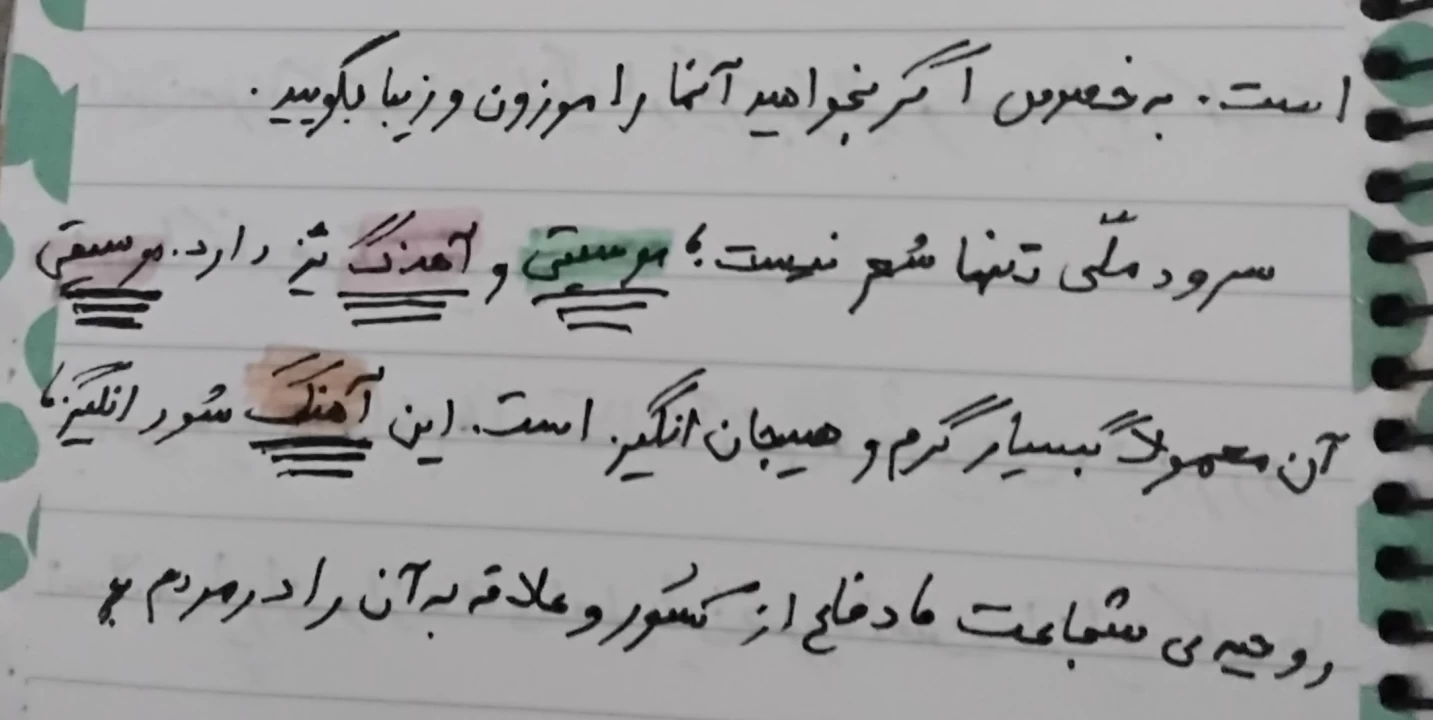 است. به خصوص اگر بخواهید آنها را موزون و زیبا بگویید.
سرود ملّی تنها شعر نیست؛ موسیقی و آهنگ نیز دارد. موسیقی
آن معمولاً بسیار گرم و هیجان انگیز است. این آهنگ شور انگیز،
روحیه ی شجاعت، دفاع از کشور و علاقه به آن را در مردم